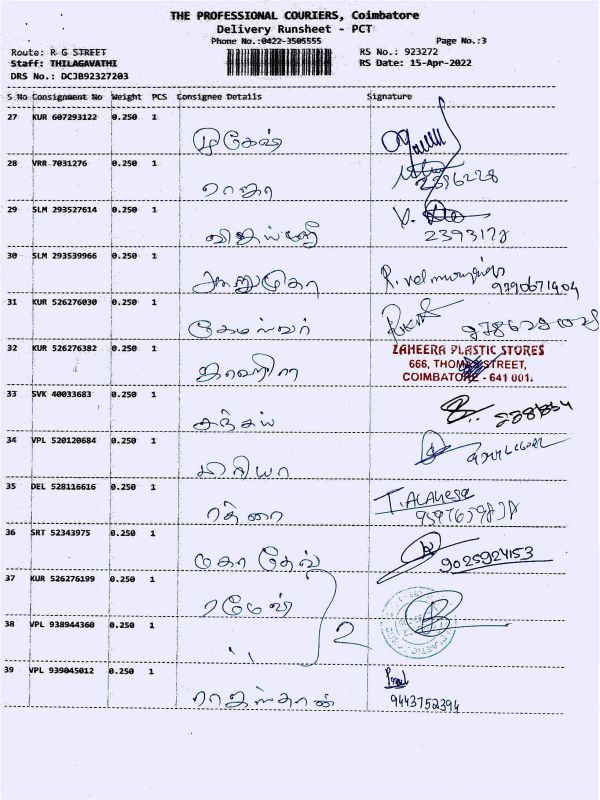 THE PROFESSIONAL COURIERS, Coimbatore
Delivery Runsheet - PCT
Phone No.:0422-3505555 Page No.:3
Route: R G STREET RS No.: 923272
Staff: THILAGAVATHI RS Date: 15-Apr-2022
DRS No.: DCJB92327203
S No Consignment No Weight PCS Consignee Details Signature
27 KUR 607293122 0.250 1
முகேஷ்
28 VRR 7031276 0.250 1
ராஜா 2396228
29 SLM 293527614 0.250 1
விஜய்ஸ்ரீ
30 SLM 293539966 0.250 1
R. velmurugan
9790671404
31 KUR 526276030 0.250 1
32 KUR 526276382 0.250 1 ZAHEERA PLASTIC STORES
666, THOMAS STREET,
COIMBATORE - 641 001.
33 SVK 40033683 0.250 1
சஞ்சய்
34 VPL 520120684 0.250 1
35 DEL 528116616 0.250 1
36 SRT 52343975 0.250 1
மகாதேவ் 9025924153
37 KUR 526276199 0.250 1
ரமேஷ்
2
38 VPL 938944360 0.250 1
''
39 VPL 939045012 0.250 1
ராஜஸ்தான் 9443752394